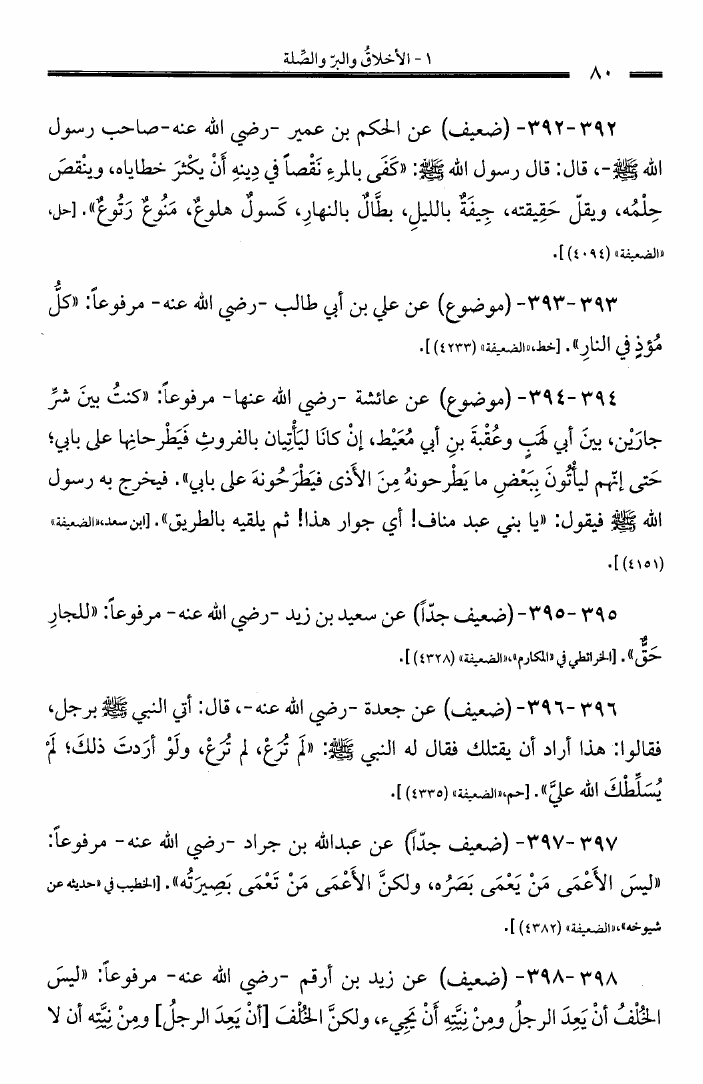 ١ - الأخلاقُ والبرّ والصِّلة
٨٠
٣٩٢-٣٩٢- (ضعيف) عن الحكم بن عمير -رضي الله عنه-صاحب رسول
الله ﷺ-، قال: قال رسول الله ﷺ: «كَفَى بالمرءِ نَقْصاً في دِينِهِ أَنْ يكْثرَ خطاياه، وينْقصَ
حِلْمُه، ويقلّ حَقِيقته، جِيفَةٌ بالليلِ، بطَّالٌ بالنهارِ، كَسولٌ هلوعٌ، مَنُوعٌ رَتُوعٌ». [حل،
«الضعيفة» (٤٠٩٤)].
٣٩٣-٣٩٣- (موضوع) عن علي بن أبي طالب -رضي الله عنه- مرفوعاً: «كلُّ
مُؤذٍ في النارِ». [خط، «الضعيفة» (٤٢٣٣)].
٣٩٤-٣٩٤- (موضوع) عن عائشة -رضي الله عنها- مرفوعاً: «كنتُ بينَ شرِّ
جارَيْن، بينَ أبي لَهَبٍ وعُقْبةَ بنِ أبي مُعَيْط، إنْ كانَا ليَأْتِيان بالفروثِ فَيَطْرحانِها على بابي؛
حَتى إنّهم ليأْتُونَ بِبَعْضِ ما يَطْرحونهُ مِنَ الأَذى فيَطْرَحُونهَ على بابي». فيخرج به رسول
الله ﷺ فيقول: «يا بني عبد مناف! أي جوار هذا! ثم يلقيه بالطريق». [ابن سعد، «الضعيفة»
(٤١٥١)].
٣٩٥-٣٩٥- (ضعيف جدّاً) عن سعيد بن زيد -رضي الله عنه- مرفوعاً: «للجارِ
حَقٌّ». [الخرائطي في «المكارم»، «الضعيفة» (٤٣٢٨)].
٣٩٦-٣٩٦- (ضعيف) عن جعدة -رضي الله عنه-، قال: أتي النبي ﷺ برجل،
فقالوا: هذا أراد أن يقتلك فقال له النبي ﷺ: «لَم تُرَعْ، لم تُرَعْ، ولَوْ أرَدتَ ذلكَ؛ لَمْ
يُسَلِّطْكَ الله عليَّ». [حم، «الضعيفة» (٤٣٣٥)].
٣٩٧-٣٩٧- (ضعيف جدّاً) عن عبدالله بن جراد -رضي الله عنه- مرفوعاً:
«ليسَ الأعْمَى مَنْ يَعْمَى بَصَرُه، ولكنَّ الأعْمَى مَنْ تَعْمَى بَصِيرَتُه». [الخطيب في «حديثه عن
شيوخه»، «الضعيفة» (٤٣٨٢)].
٣٩٨-٣٩٨- (ضعيف) عن زيد بن أرقم -رضي الله عنه- مرفوعاً: «ليسَ
الخُلْفُ أنْ يَعِدَ الرجلُ ومِنْ نِيَّتِهِ أَنْ يَجِيء، ولكنَّ الخُلْفَ [أنْ يَعِدَ الرجلُ] ومِنْ نِيَّتِه أن لا